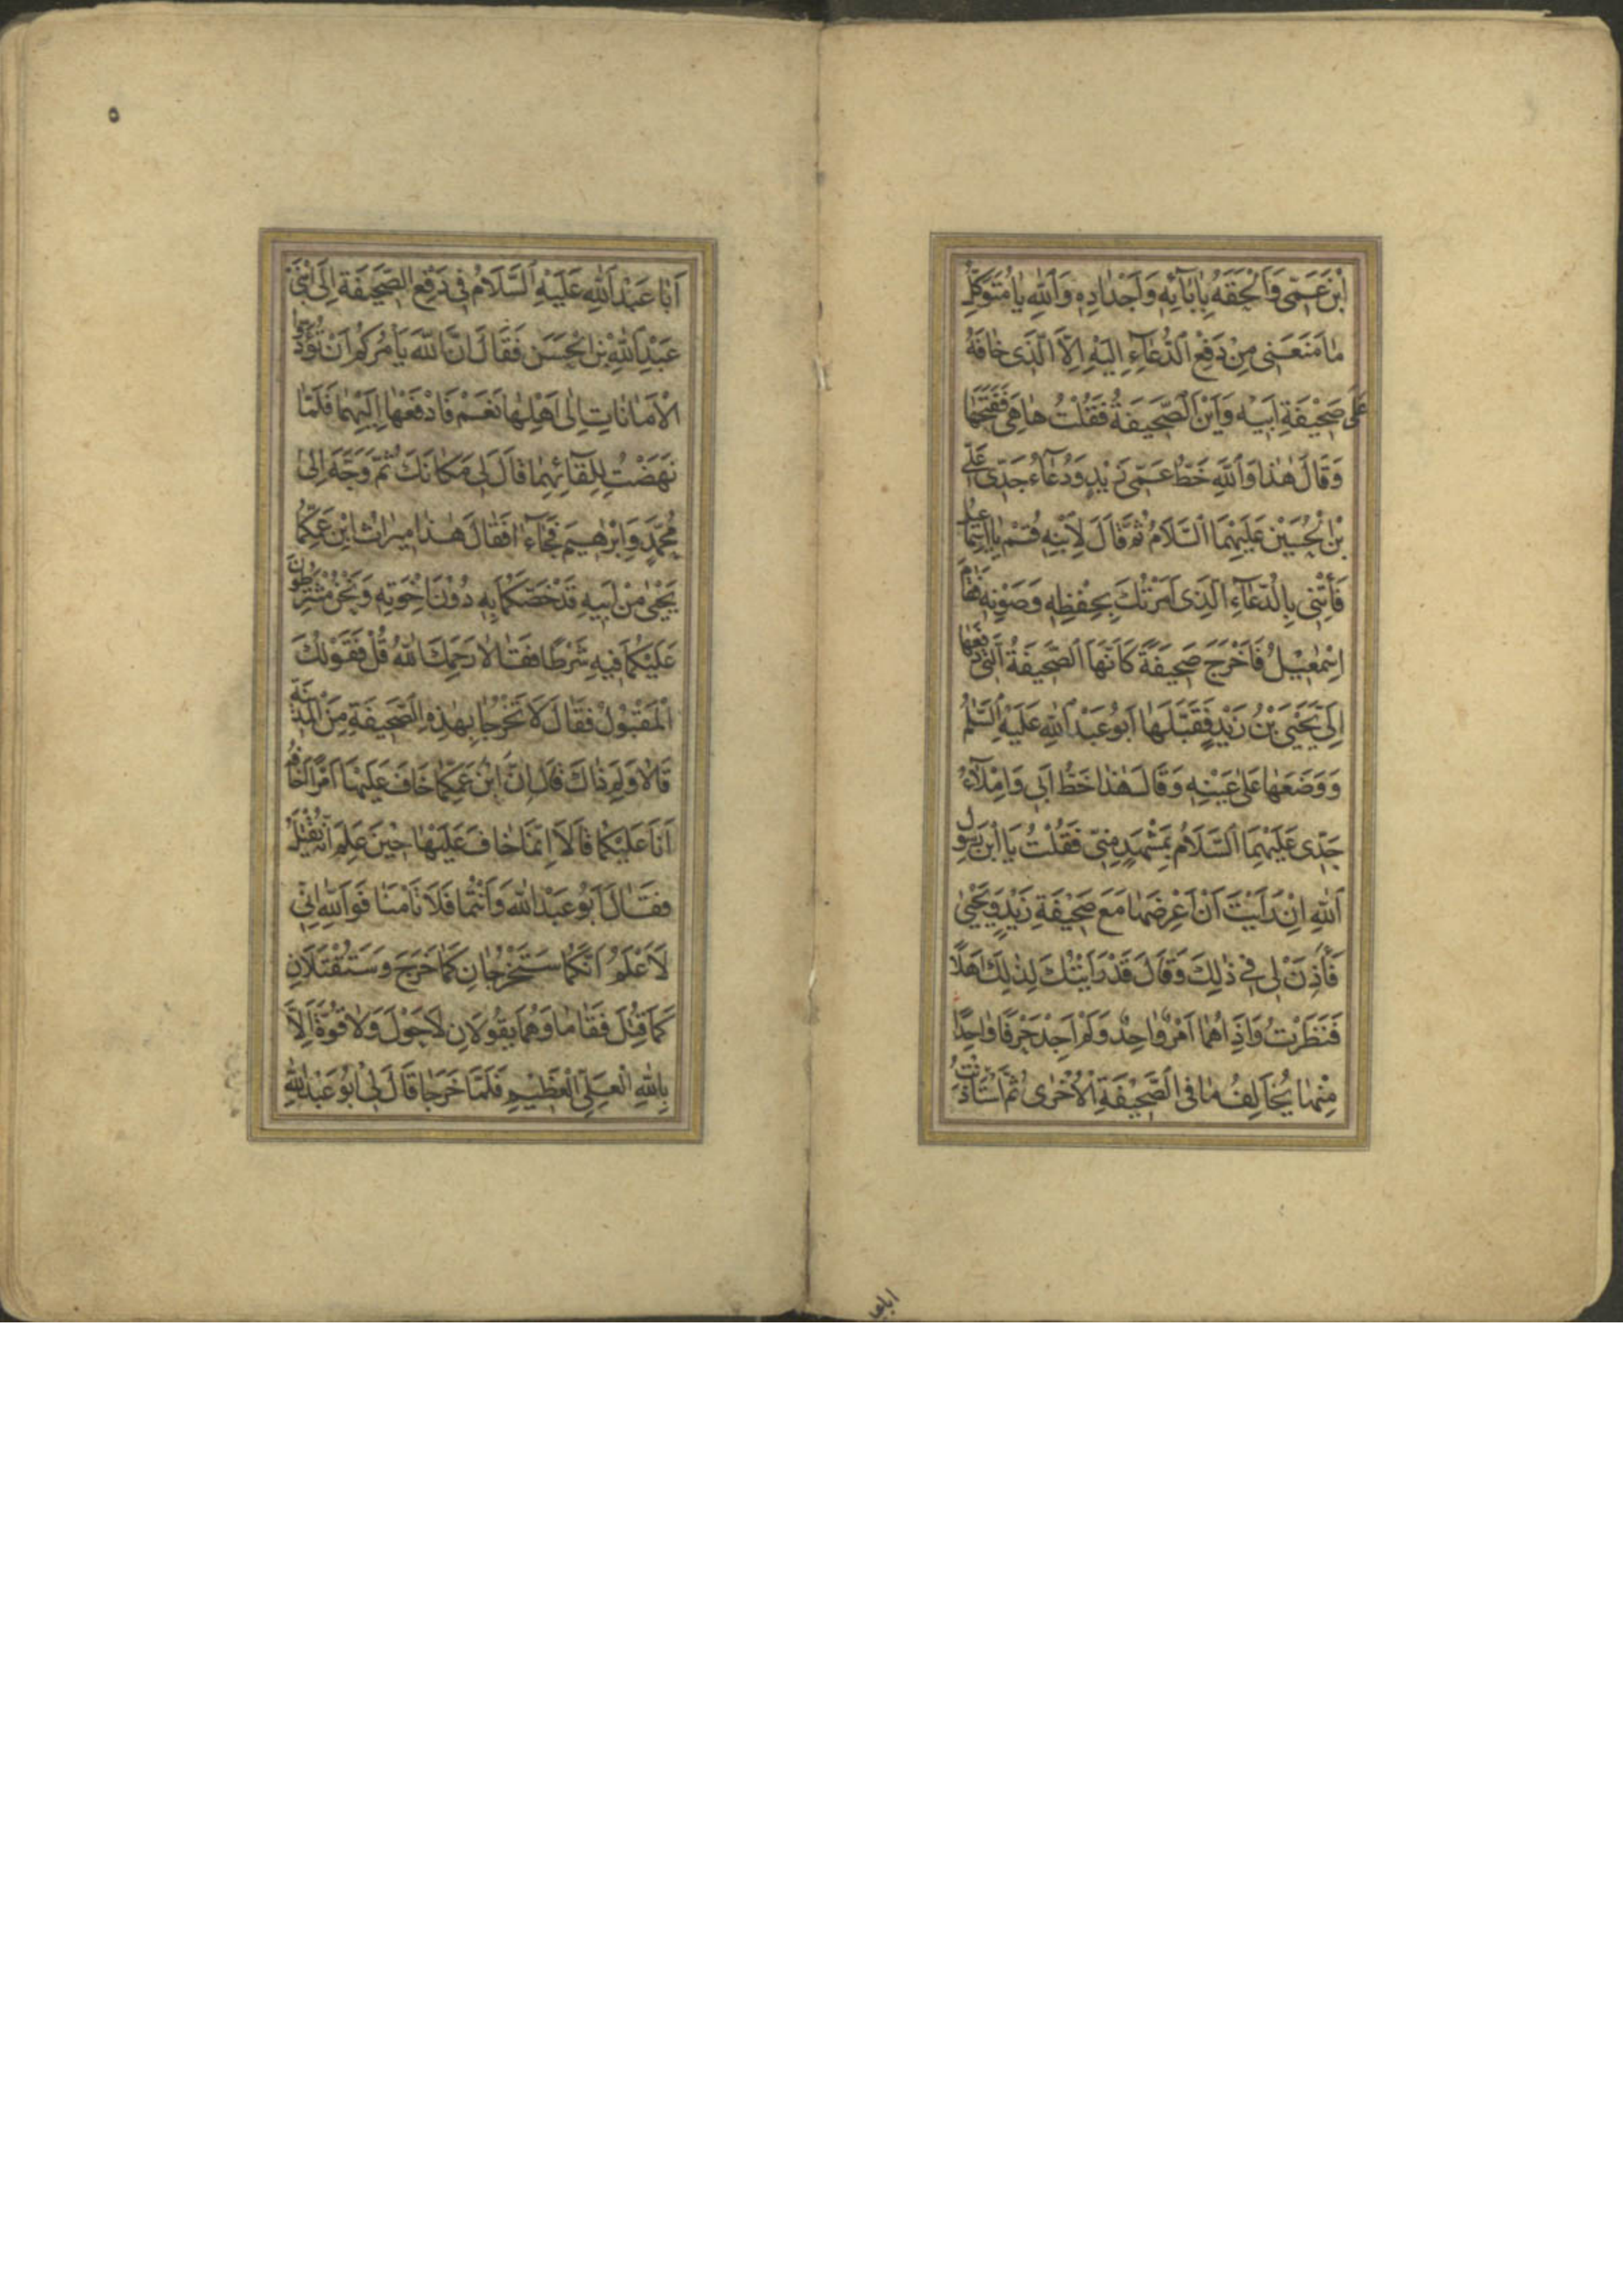 ابْنَ عَمّى وَاَلْحَقَهُ بِاٰبَآئِهٖ وَاَجْدٰادِهٖ وَاَللّٰهِ يٰا مُتَوَكِّلُ
مٰا مَنَعَنى مِنْ دَفْعِ الدُّعٰآءِ اِلَيْهِ اِلَّا الَّذى خٰافَهُ
عَلٰى صَحيْفَةِ اَبيْهِ وَاَيْنَ الصَّحيفَةُ فَقُلْتُ هٰا هِىَ فَفَتَحَهٰا
وَقٰالَ هٰذٰا وَاللّٰهِ خَطُّ عَمّى زَيْدٍ وَدُعٰآءُ جَدّى عَلىِّ
بْنِ الْحُسَيْنِ عَلَيْهِمَا السَّلَامُ ثُمَّ قٰالَ لِاِبْنِهٖ قُمْ يٰا اِسْمٰعيلُ
فَأْتِنى بِالدُّعٰآءِ الَّذى اَمَرْتُكَ بِحِفْظِهٖ وَصَوْنِهٖ فَقٰامَ
اِسْمٰعيْلُ فَاَخْرَجَ صَحيفَةً كَاَنَّهَا الصَّحيفَةُ الَّتى دَفَعَهٰا
اِلَىَّ يَحْيَى بْنُ زَيْدٍ فَقَبَّلَهٰا اَبُو عَبْدِ اللّٰهِ عَلَيْهِ السَّلٰمُ
وَوَضَعَهٰا عَلٰى عَيْنِهٖ وَقٰالَ هٰذٰا خَطُّ اَبى وَاِمْلٰآءُ
جَدّى عَلَيْهِمَا السَّلَامُ بِمَشْهَدٍ مِنّى فَقُلْتُ يَا ابْنَ رَسُولِ
اللّٰهِ اِنْ رَاَيْتَ اَنْ اَعْرِضَهٰا مَعَ صَحيْفَةِ زَيْدٍ وَيَحْيٰى
فَأَذِنَ لى فى ذٰلِكَ وَقٰالَ قَدْ رَاَيْتُكَ لِذٰلِكَ اَهْلًا
فَنَظَرْتُ وَاِذٰا هُمٰا اَمْرٌ وٰاحِدٌ وَلَمْ اَجِدْ حَرْفًا وٰاحِدًا
مِنْهٰا يُخٰالِفُ مٰا فى الصَّحيْفَةِ الْاُخْرٰى ثُمَّ اسْتَأْذَنْتُ
٥
اَبٰا عَبْدِ اللّٰهِ عَلَيْهِ السَّلَامُ فى دَفْعِ الصَّحيفَةِ اِلَى ابْنَىْ
عَبْدِ اللّٰهِ بْنِ الْحَسَنِ فَقٰالَ اِنَّ اللّٰهَ يَأْمُرُكُمْ اَنْ تُؤَدُّوا
الْاَمٰانٰاتِ اِلٰى اَهْلِهٰا نَعَمْ فَادْفَعْهٰا اِلَيْهِمٰا فَلَمّٰا
نَهَضْتُ لِلِقٰآئِهِمٰا قٰالَ لى مَكٰانَكَ ثُمَّ وَجَّهَ اِلٰى
مُحَمَّدٍ وَاِبْرٰهيمَ فَجٰآءٰا فَقٰالَ هٰذٰا ميرٰاثُ ابْنِ عَمِّكُمٰا
يَحْيٰى مِنْ اَبيهِ قَدْ خَصَّكُمٰا بِهٖ دُوْنَ اِخْوَتِهٖ وَنَحْنُ مُشْتَرِطُونَ
عَلَيْكُمٰا فيهِ شَرْطًا فَقٰالٰا رَحِمَكَ اللّٰهُ قُلْ فَقَوْلُكَ
الْمَقْبُولُ فَقٰالَ لَا تَخْرُجٰا بِهٰذِهِ الصَّحيفَةِ مِنَ الْمَدينَةِ
قٰالٰا وَلِمَ ذٰاكَ قٰالَ اِنَّ ابْنَ عَمِّكُمٰا خٰافَ عَلَيْهٰا اَمْرًا اَخٰافُهُ
اَنَا عَلَيْكُمٰا قٰالَا اِنَّمٰا خٰافَ عَلَيْهٰا حيْنَ عَلِمَ اَنَّهُ يُقْتَلُ
فَقٰالَ اَبُو عَبْدِ اللّٰهِ وَاَنْتُمٰا فَلَا تَأْمَنٰا فَوَ اللّٰهِ اِنّى
لَاَعْلَمُ اَنَّكُمٰا سَتَخْرُجٰانِ كَمٰا خَرَجَ وَسَتُقْتَلَانِ
كَمٰا قُتِلَ فَقٰامٰا وَهُمٰا يَقُولَانِ لَا حَوْلَ وَلٰا قُوَّةَ اِلَّا
بِاللّٰهِ الْعَلِىِّ الْعَظيْمِ فَلَمّٰا خَرَجٰا قٰالَ لى اَبُو عَبْدِ اللّٰهِ